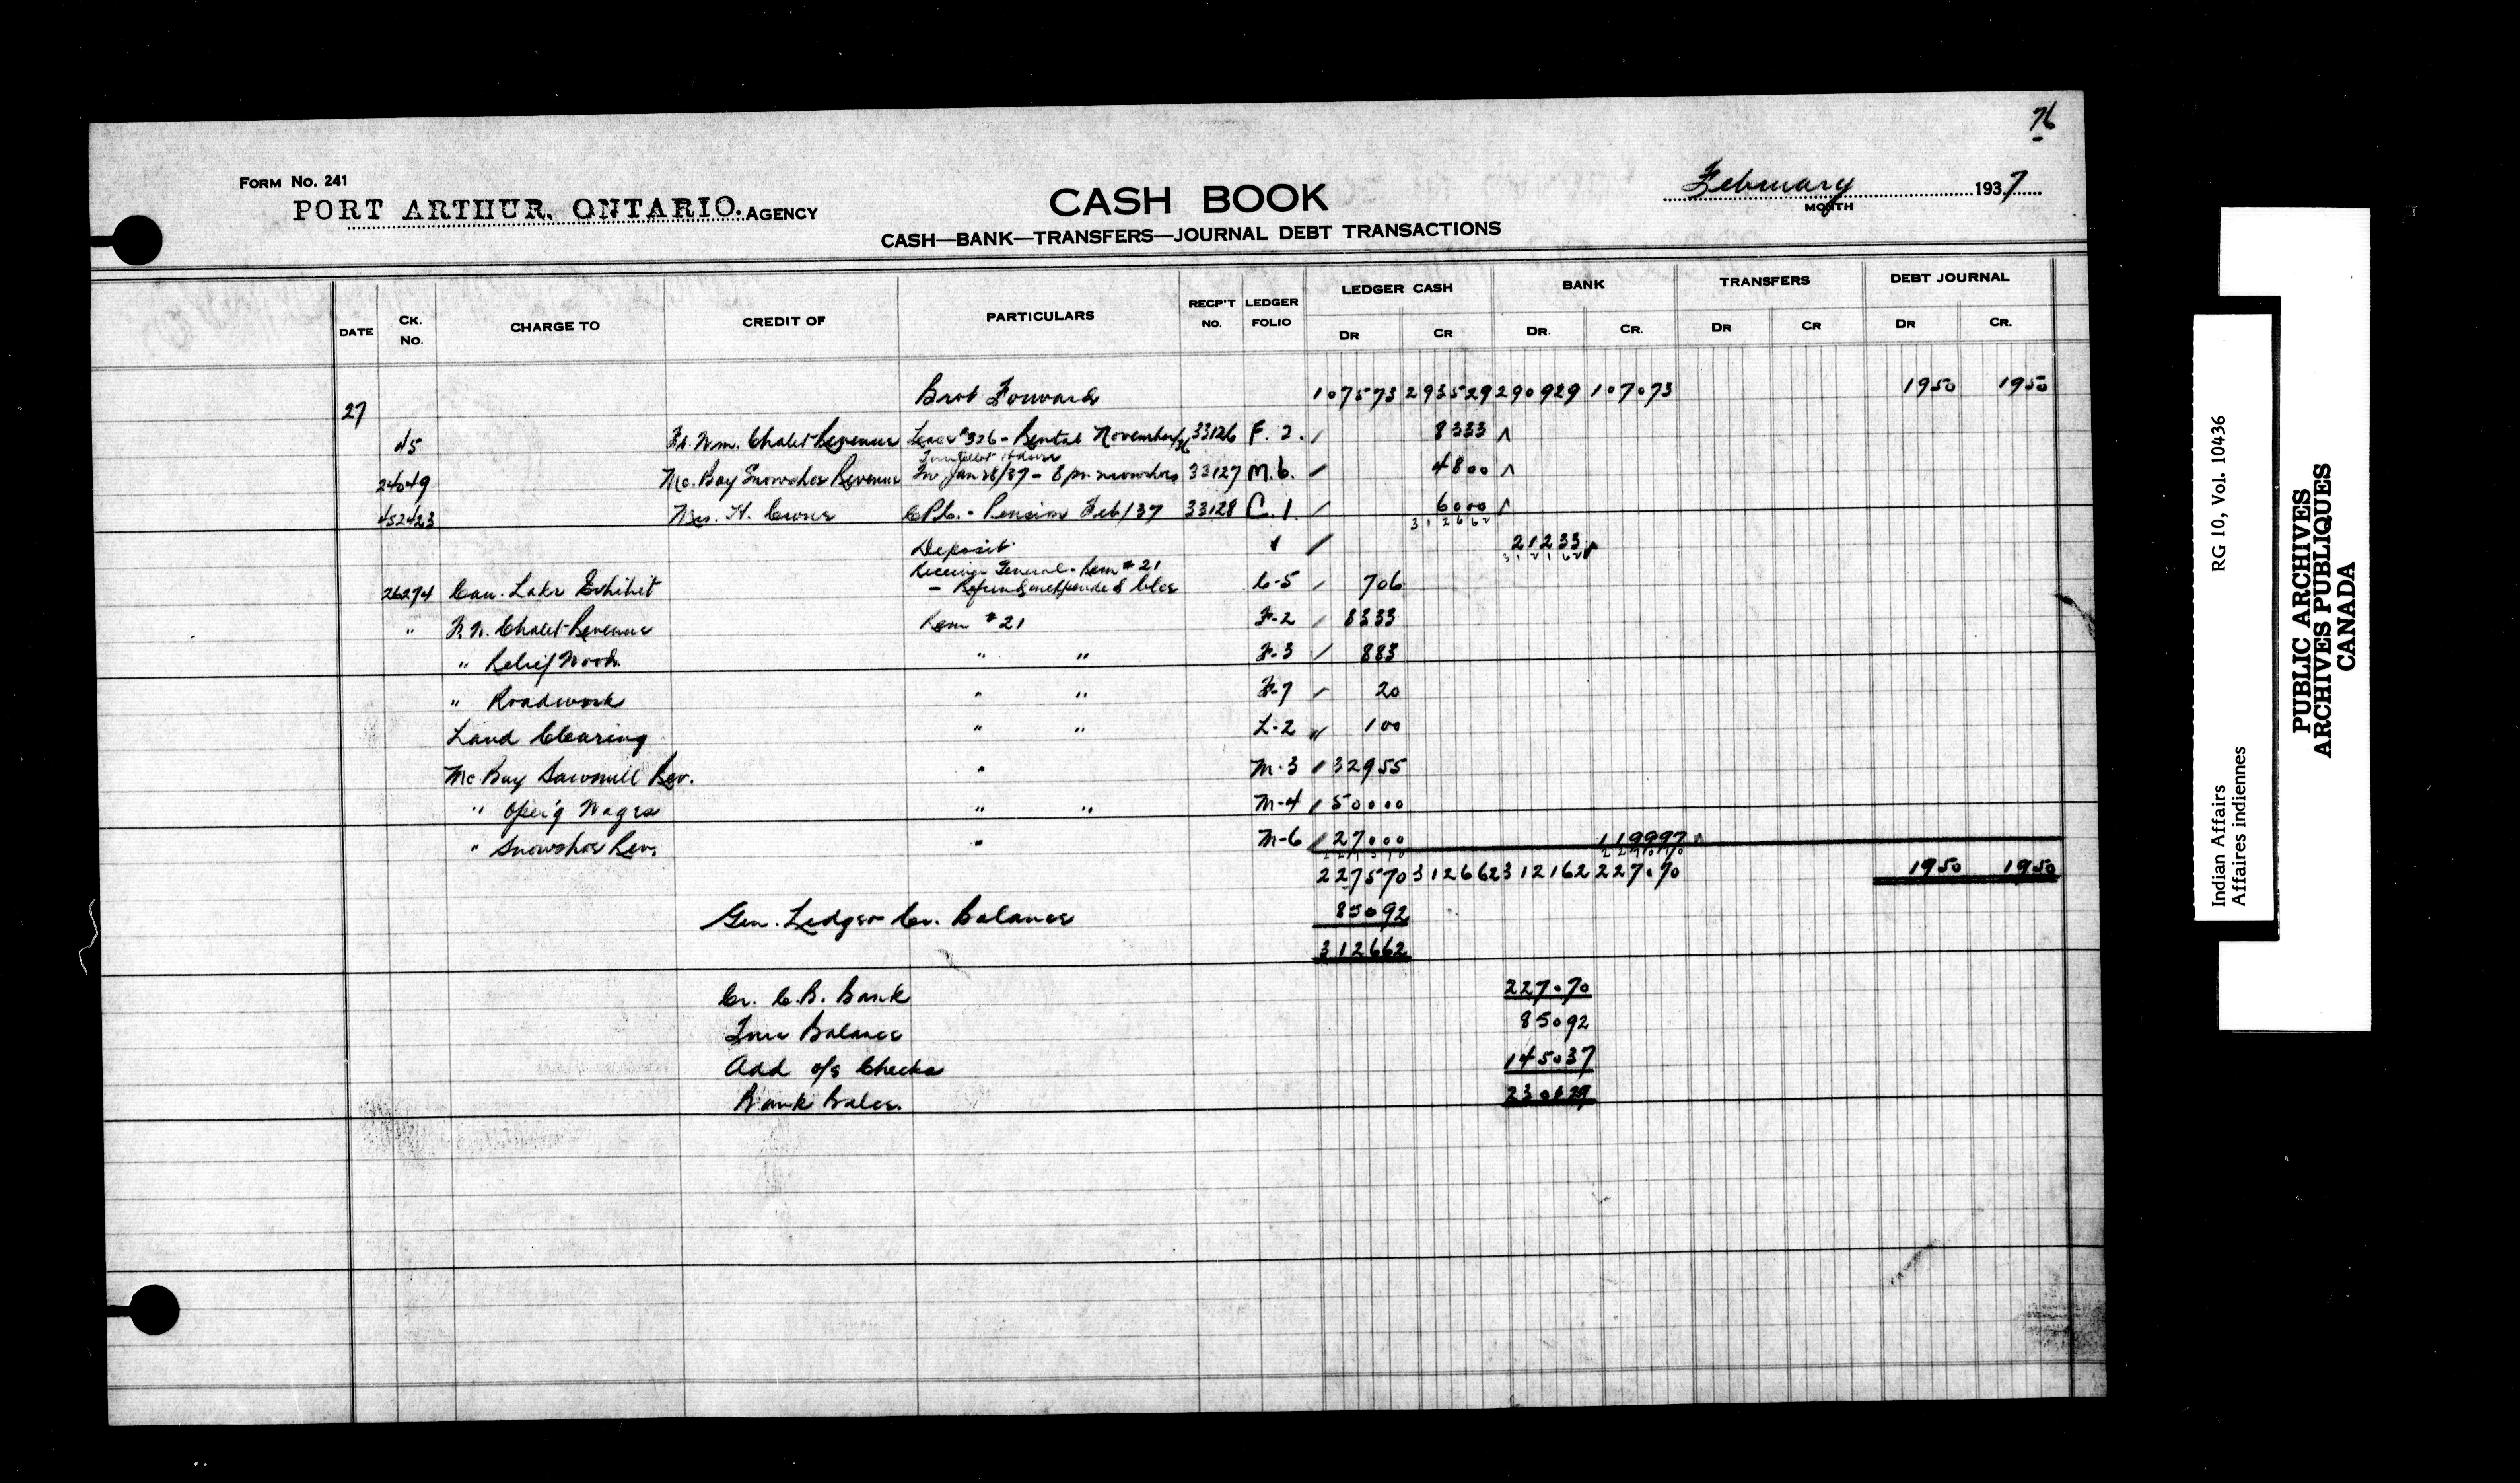 76
FORM NO. 241
PORT ARTHUR, ONTARIO. AGENCY
CASH BOOK
February 1937
MONTH
CASH—BANK—TRANSFERS—JOURNAL DEBT TRANSACTIONS
DATE CK. NO. CHARGE TO CREDIT OF PARTICULARS RECP'T NO. LEDGER FOLIO LEDGER CASH BANK TRANSFERS DEBT JOURNAL
DR CR DR. CR. DR CR DR CR.
Brot Forward 107573 293529 290929 107073 1950 1950
27
45 Ft. Wm. Chalet Revenue Lease #326 - Rental November/36 33126 F. 2. 8333
24049 Mc. Bay Snowshoe Revenue Inv Jan 28/37 - 8 pr. snowshoes 33127 M.6. 4800
452423 Mrs. H. Crowe C.P.C. - Pension Feb/37 33128 C. 1. 6000
312662
Deposit 21233
312162
Receiver General - Rem # 21
26274 Can. Lake Exhibit - Refund unexpended blce C-5 706
" F.W. Chalet Revenue Rem # 21 F-2 8333
" Relief Wood " " F-3 883
" Roadwork " " F-7 20
Land Clearing " " L-2 100
Mc. Bay Sawmill Rev. " M-3 32955
" Oper'g Wages " " M-4 50000
" Snowshoe Rev. " M-6 27000 119997
227570 312662 312162 227070 1950 1950
Gen. Ledger Cr. Balance 85092
312662
Cr. C.B. Bank 227070
True Balance 85092
Add o/s Checks 145037
Bank Balce. 230129
Indian Affairs RG 10, Vol. 10436
Affaires indiennes
PUBLIC ARCHIVES
ARCHIVES PUBLIQUES
CANADA